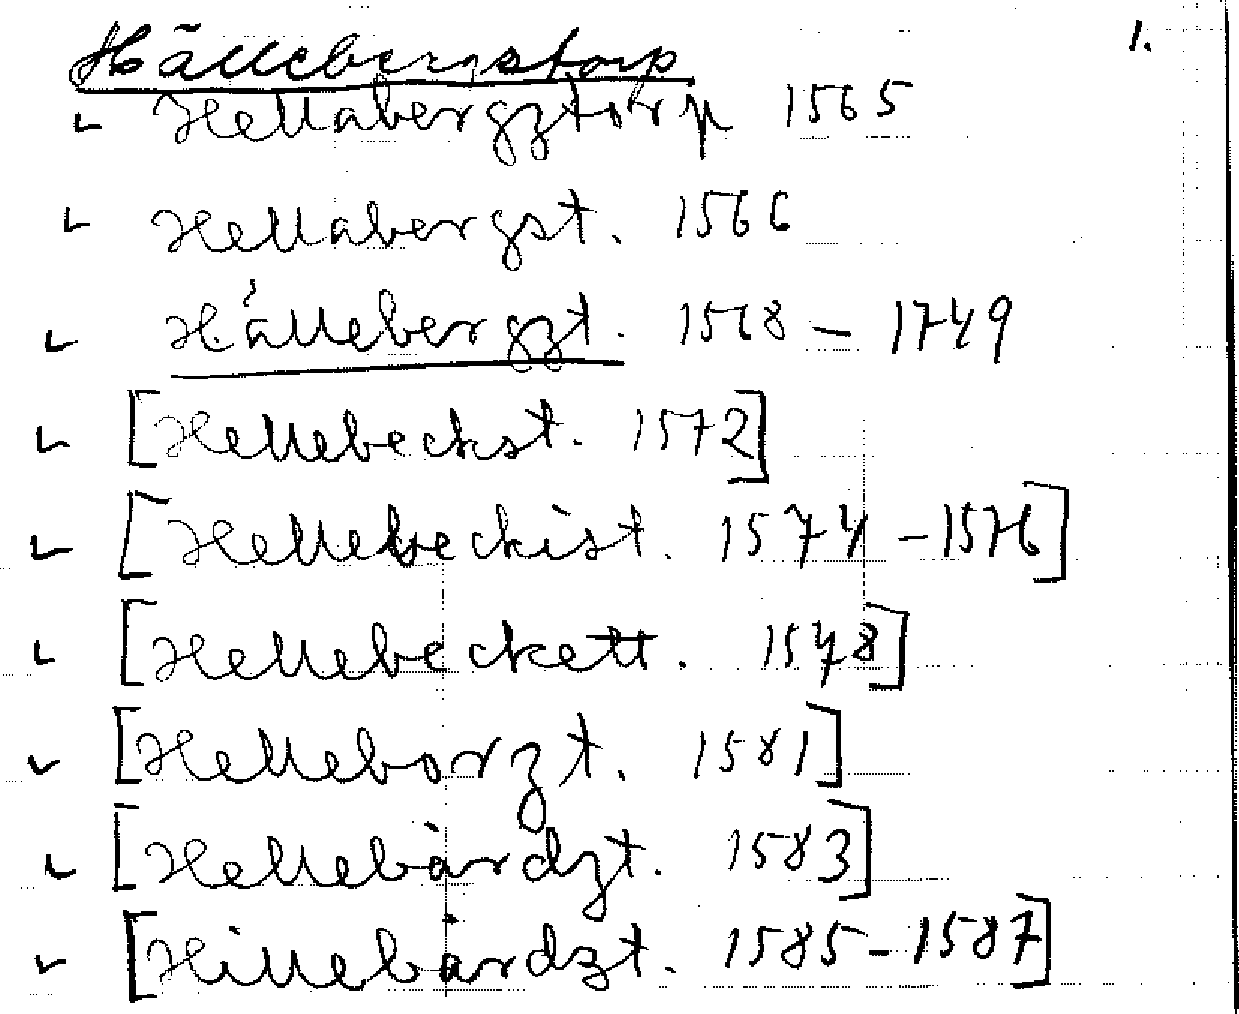 Hällebergstorp 1.
Hellabergztorp 1565
Hellabergst. 1566
Hällebergzt. 1568 – 1749
[Hellebeckst. 1572]
[Hellebeckist. 1574 – 1576]
[Hellebeckett. 1578]
[Helleborzt. 1581]
[Hellebårdzt. 1583]
[Hillebårdzt. 1585 – 1587]